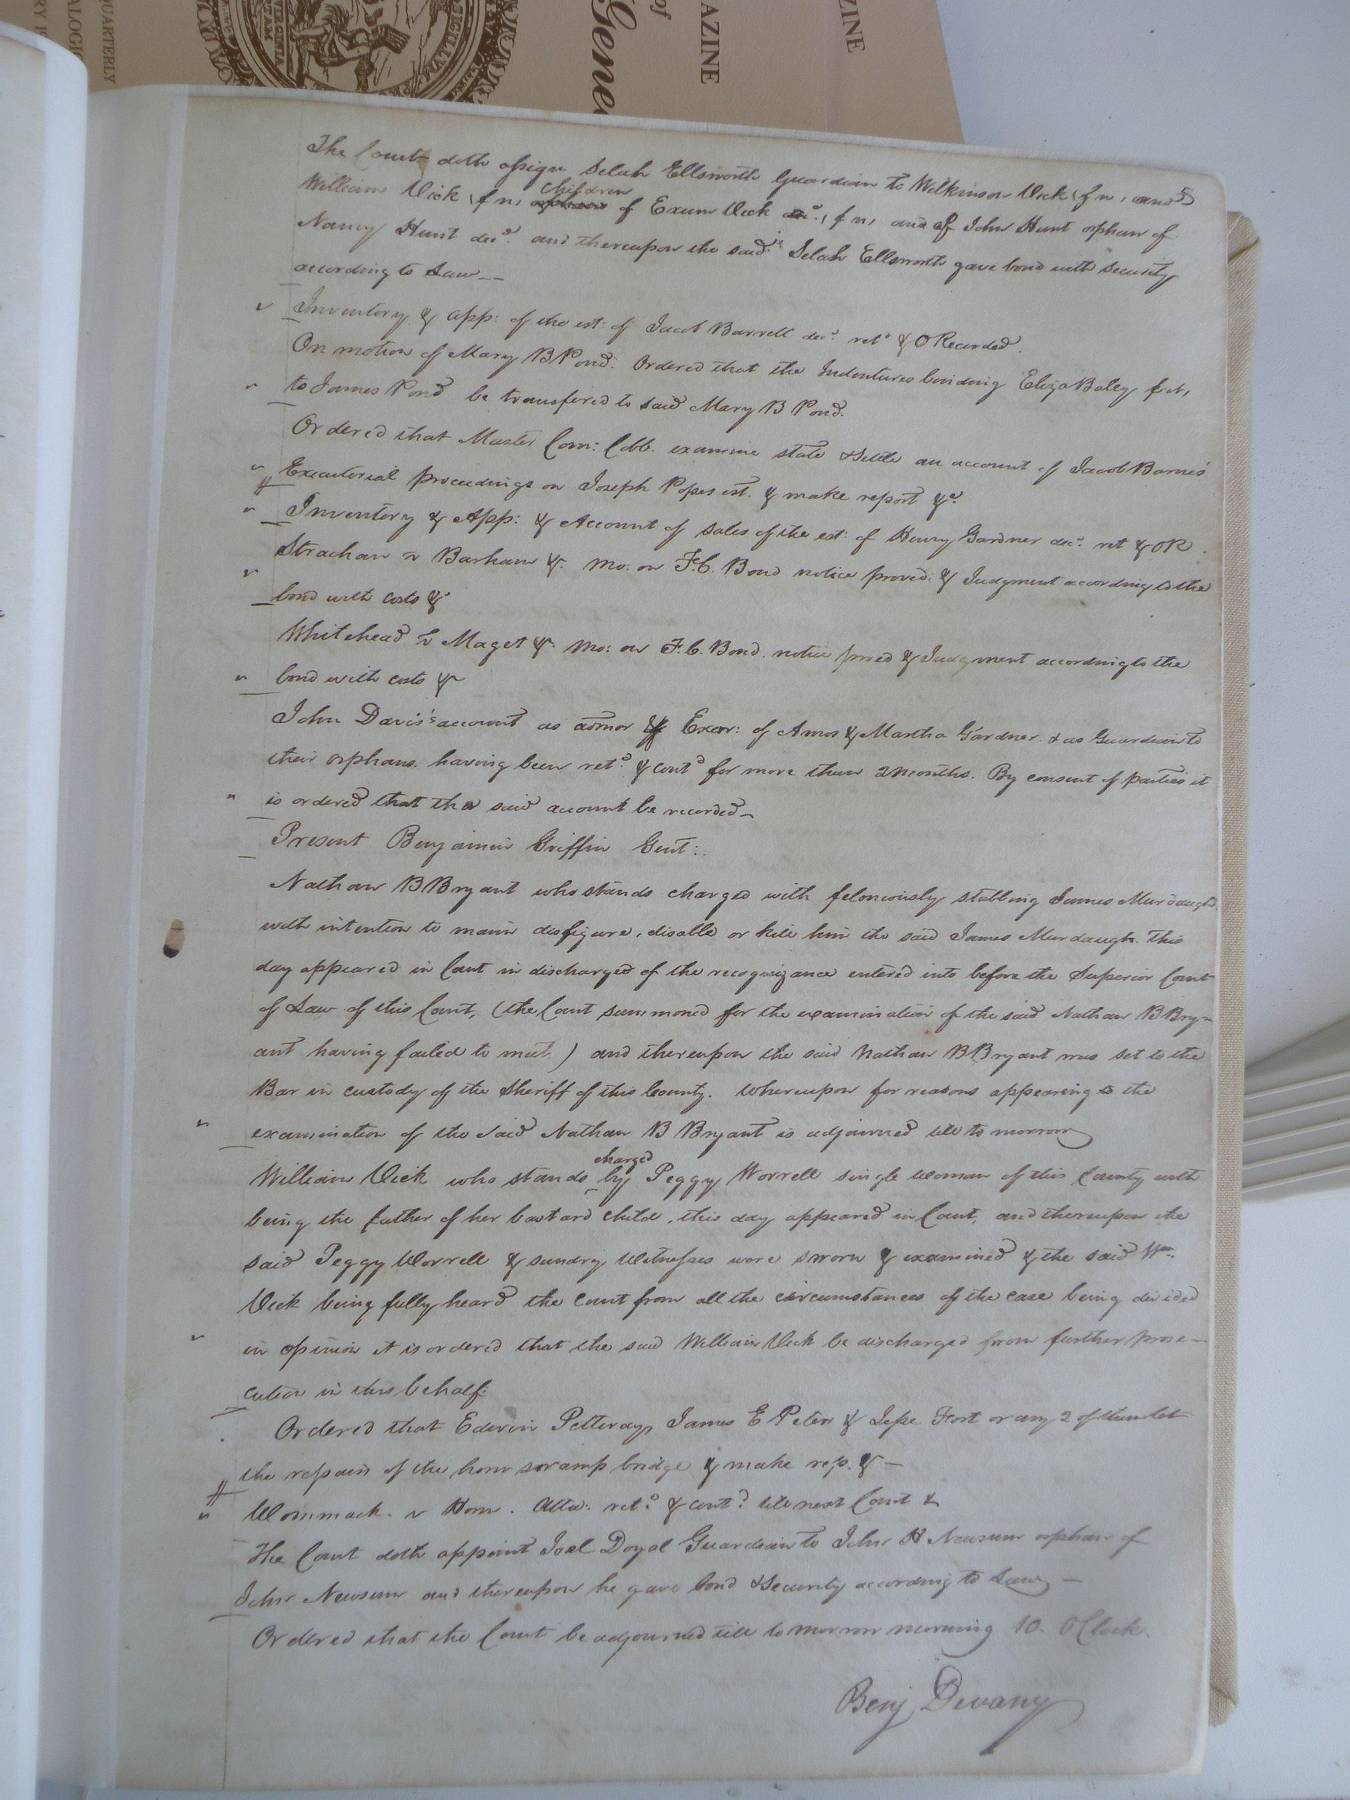 ZINE
AZINE
of
Gene
QUARTERLY
ALOGIC
RY 1
The Court doth assign Selah Ellsworth Guardian to Wilkinson Vick (f n, and
William Vick (f n, children of Exum Vick (f n, and of John Hunt orphan of
Nancy Hunt decd. and thereupon the said Selah Ellsworth gave bond with security
according to Law
Inventory & app: of the est: of Jacob Barrett decd. retd & O Recorded.
On motion of Mary B Pond. Ordered that the Indentures binding Eliza Baley f n,
to James Pond be transfered to said Mary B Pond.
Ordered that Master Com: Cobb. examine state & settle an account of Jacob Barnes'
Executorial proceedings on Joseph Popes est. & make report &c.
Inventory & App: & Account of sales of the est: of Henry Gardner decd. ret & OR.
Strachan v Barham &. Mo: on F.C. Bond notice proved. & Judgment according to the
bond with costs &c
Whitehead v Maget &. Mo: on F.C. Bond. notice proved & Judgment according to the
bond with costs &c
John Davis's account as admor & Exor: of Amos & Martha Gardner & as Guardian to
their orphans. having been retd. & contd for more than 2 months. By consent of parties it
is ordered that the said account be recorded
Present Benjamin Griffin Gent:
Nathan B Bryant who stands charged with feloniously stabbing James Murdaugh
with intention to maim disfigure, disable or kill him the said James Murdaugh. This
day appeared in Court in discharged of the recognizance entered into before the Superior Court
of Law of this Count, (the Court summoned for the examination of the said Nathan B Bry-
ant having failed to meet.) and thereupon the said Nathan B Bryant was set to the
Bar in custody of the Sheriff of this County. Whereupon for reasons appearing to the
examination of the said Nathan B Bryant is adjourned till to morrow
William Vick who stands charged by Peggy Worrell single woman of this County with
being the father of her bastard child, this day appeared in Court, and thereupon the
said Peggy Worrell & sundry Witnesses were sworn & examined & the said Wm.
Vick being fully heard the Court from all the circumstances of the case being divided
in opinion it is ordered that the said William Vick be discharged from further prose-
cution in this behalf.
Ordered that Edwin Pettway, James E Peters & Jesse Fort or any 2 of them let
the repairs of the horn swamp bridge & make rep. &
Wommack v Horn. Atta: retd. & contd. till next Court &
The Court doth appoint Joel Doyal Guardian to John H Newsum orphan of
John Newsum and thereupon he gave bond & Security according to Law
Ordered that the Court be adjourned till to morrow morning 10. O Clock.
Benj Devany